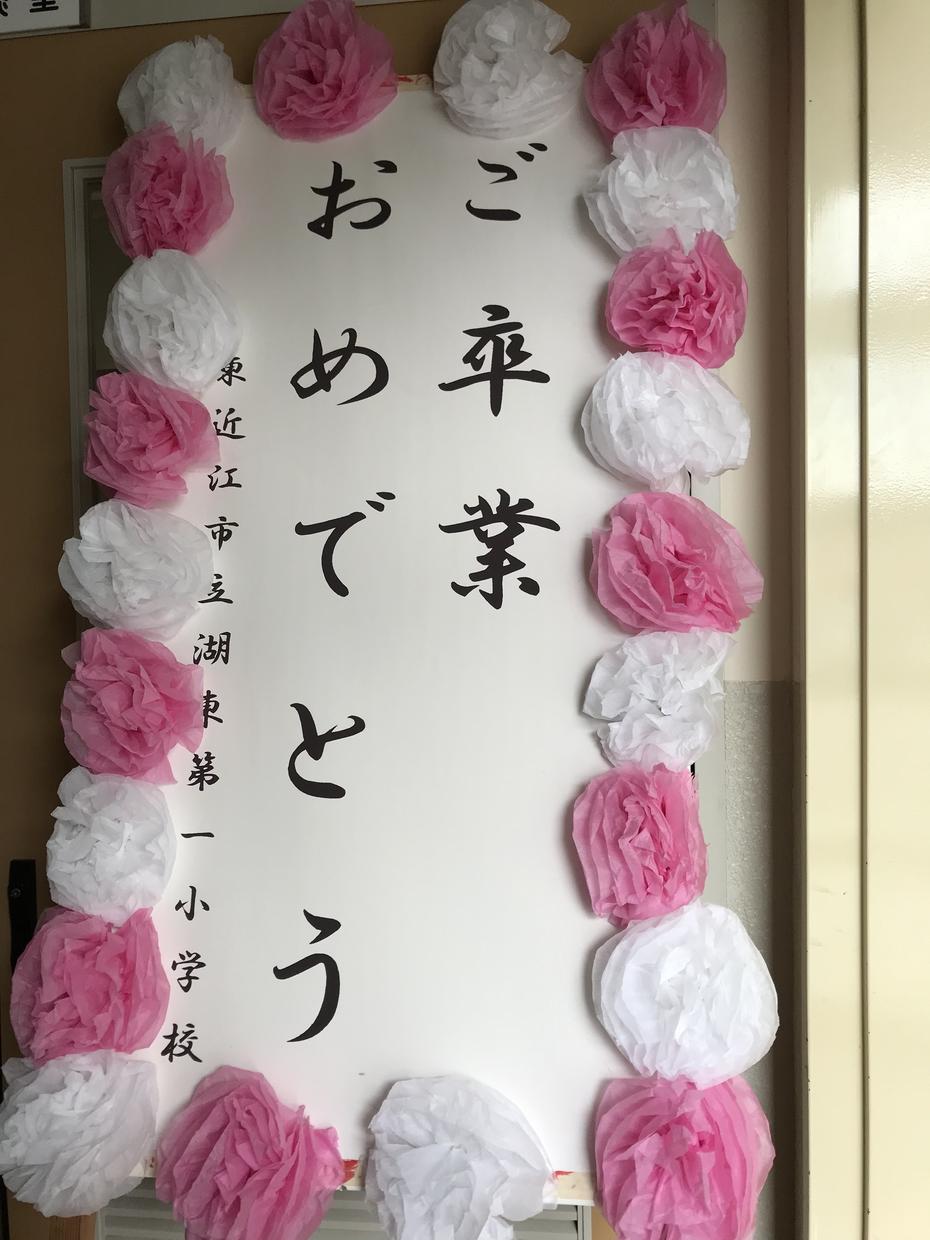 ご卒業
おめでとう
東近江市立湖東第一小学校